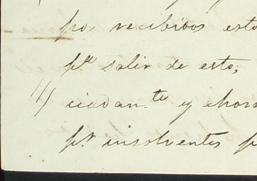 por recibidos esto
pa salir de esto,
ciadan.te y ahora
pr insolventes p